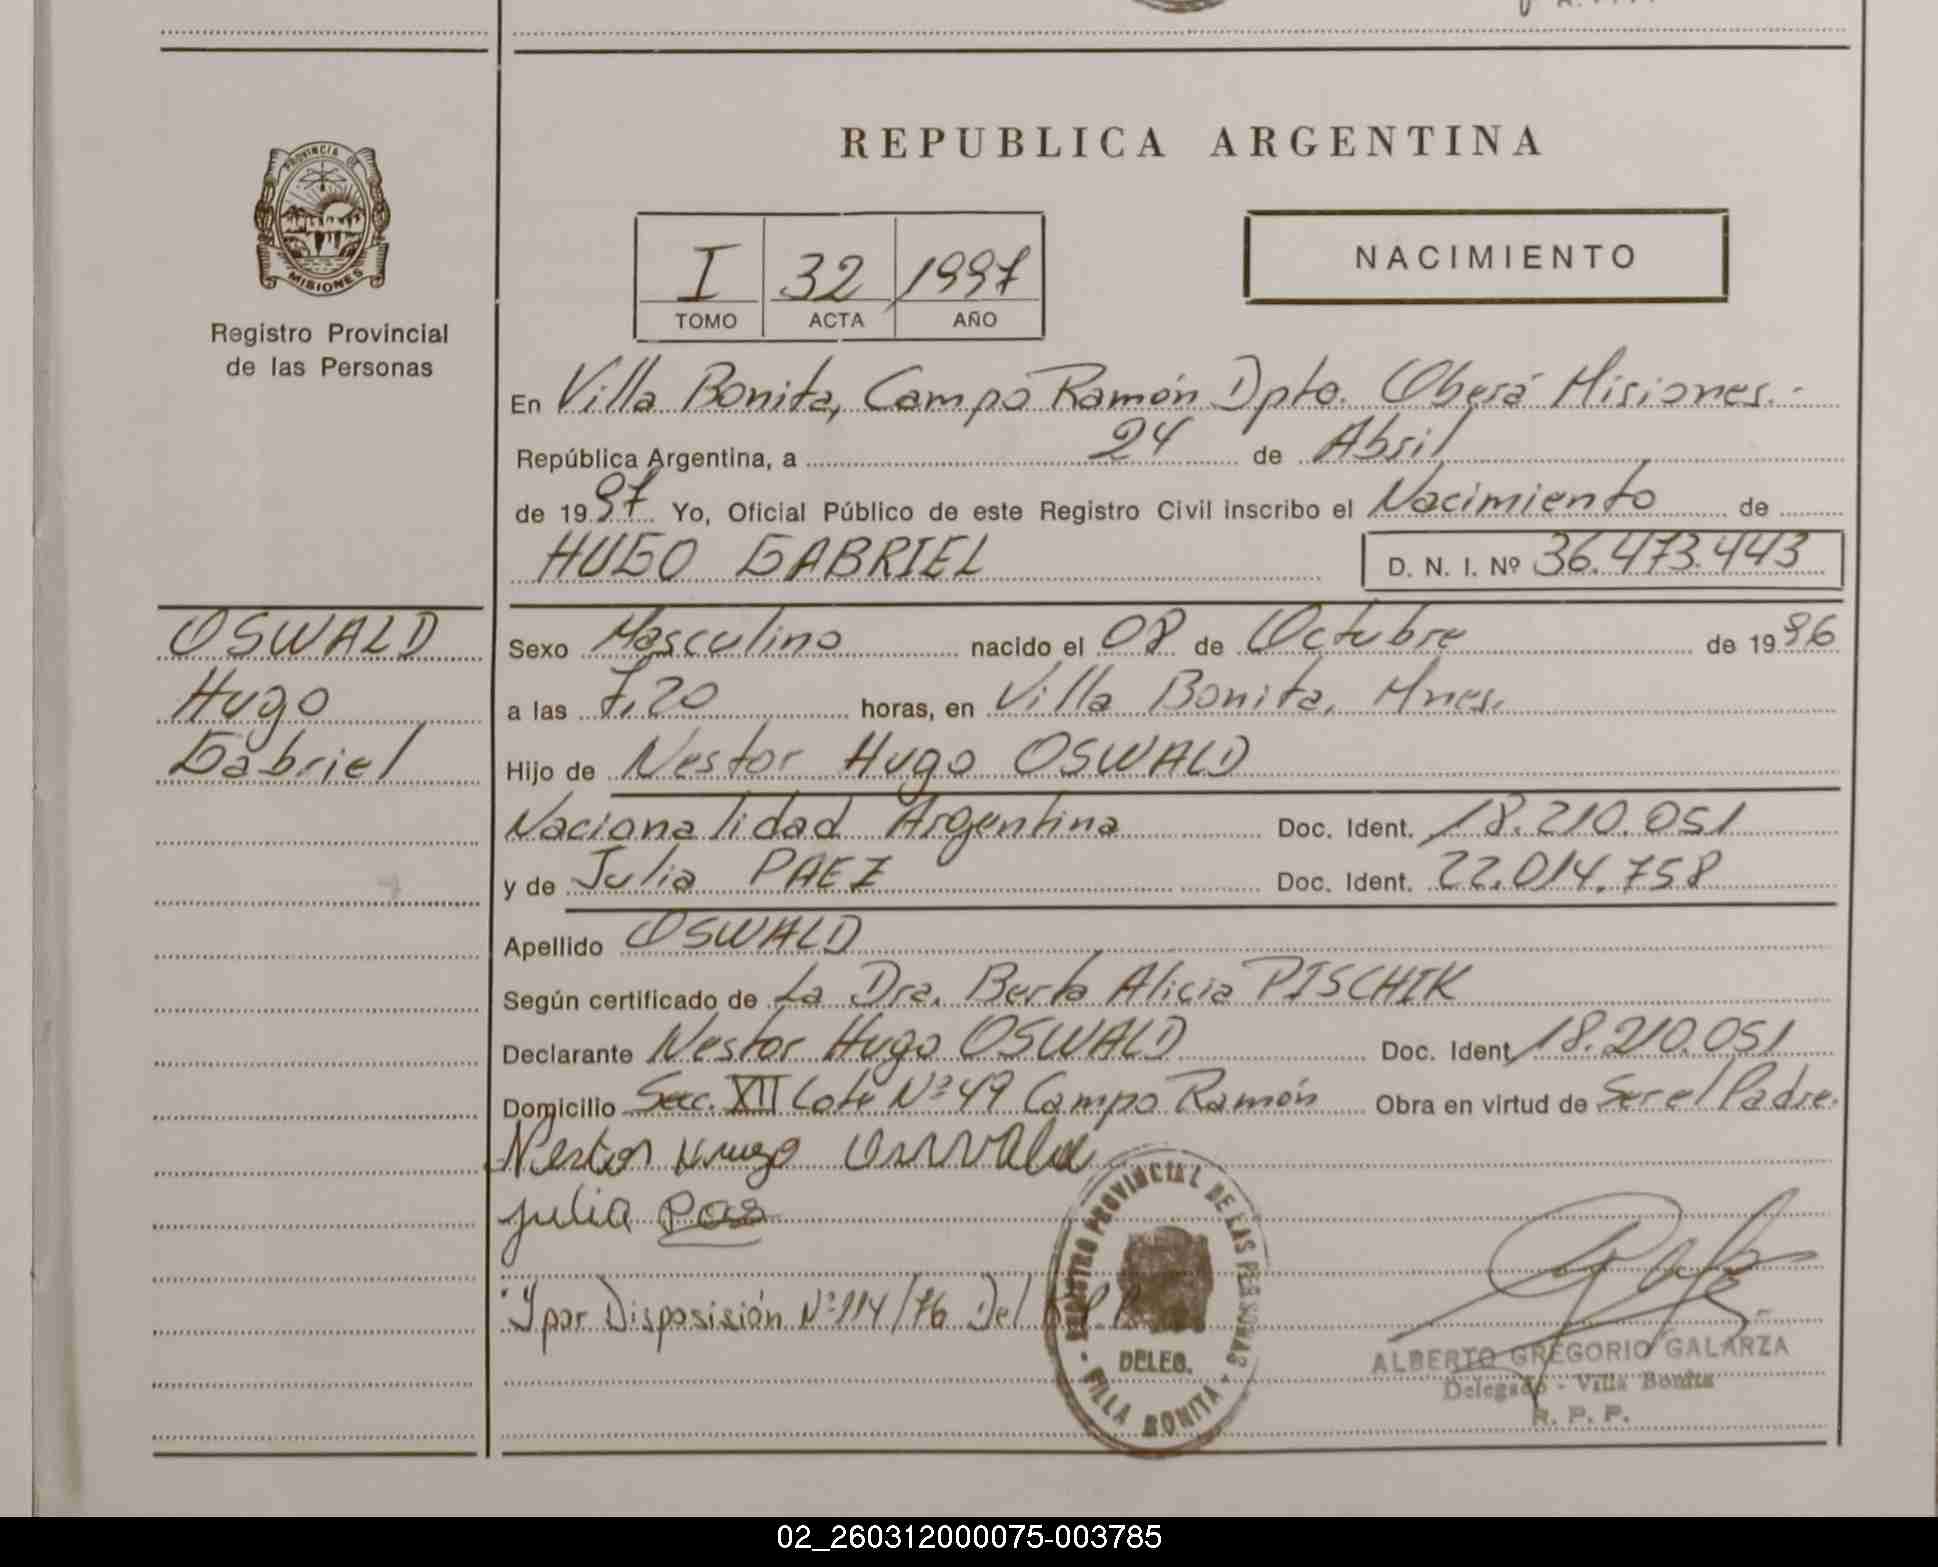 REPUBLICA ARGENTINA
PROVINCIA DE
MISIONES
Registro Provincial
de las Personas
I 32 1997
TOMO ACTA AÑO
NACIMIENTO
En Villa Bonita, Campo Ramón Dpto. Oberá Misiones.-
República Argentina, a 24 de Abril
de 1997 Yo, Oficial Público de este Registro Civil inscribo el Nacimiento de
HUGO GABRIEL D. N. I. Nº 36.473.443
OSWALD
Hugo
Gabriel
Sexo Masculino nacido el 08 de Octubre de 1996
a las 7,20 horas, en Villa Bonita, Mnes.
Hijo de Nestor Hugo OSWALD
Nacionalidad Argentina Doc. Ident. 18.210.051
y de Julia PAEZ Doc. Ident. 22.014.758
Apellido OSWALD
Según certificado de La Dra. Berta Alicia PISCHIK
Declarante Nestor Hugo OSWALD Doc. Ident. 18.210.051
Domicilio Secc. XII Lote Nº 49 Campo Ramón Obra en virtud de Ser el Padre.
Nestor Hugo Oswald
Julia Paes
Y por Disposisión Nº 114/76 Del R.P.P.
REGISTRO PROVINCIAL DE LAS PERSONAS
DELEG.
- VILLA BONITA -
ALBERTO GREGORIO GALARZA
Delegado - Villa Bonita
R. P. P.
02_260312000075-003785